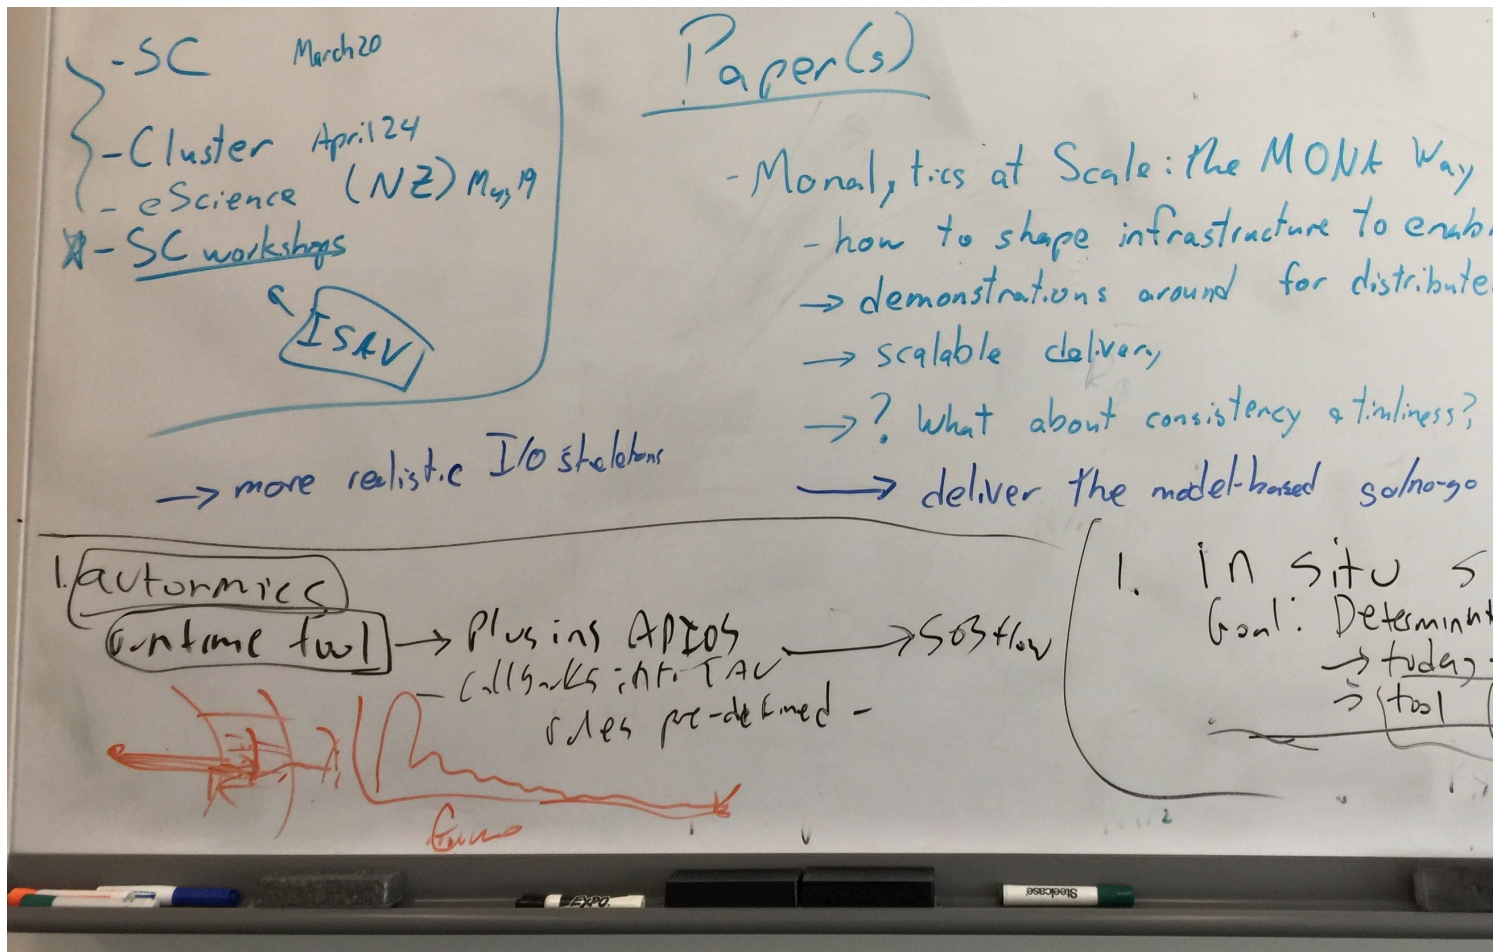 - SC March 20
- Cluster April 24
- eScience (NZ) May 19
- SC workshops
ISAV
→ more realistic I/O skeletons
Paper(s)
- Monalytics at Scale: the MONA Way
- how to shape infrastructure to enab
→ demonstrations around for distribute
→ scalable delivery
→ ? What about consistency & timliness?
→ deliver the model-based go/no-go
1. autormics
runtime tool → Plusins ADIOS → SOSflow
- callbacks into TAU
rules pre-defined -
1. in situ s
Goal: Determin
→ today
→ tool
EXPO
Steelcase